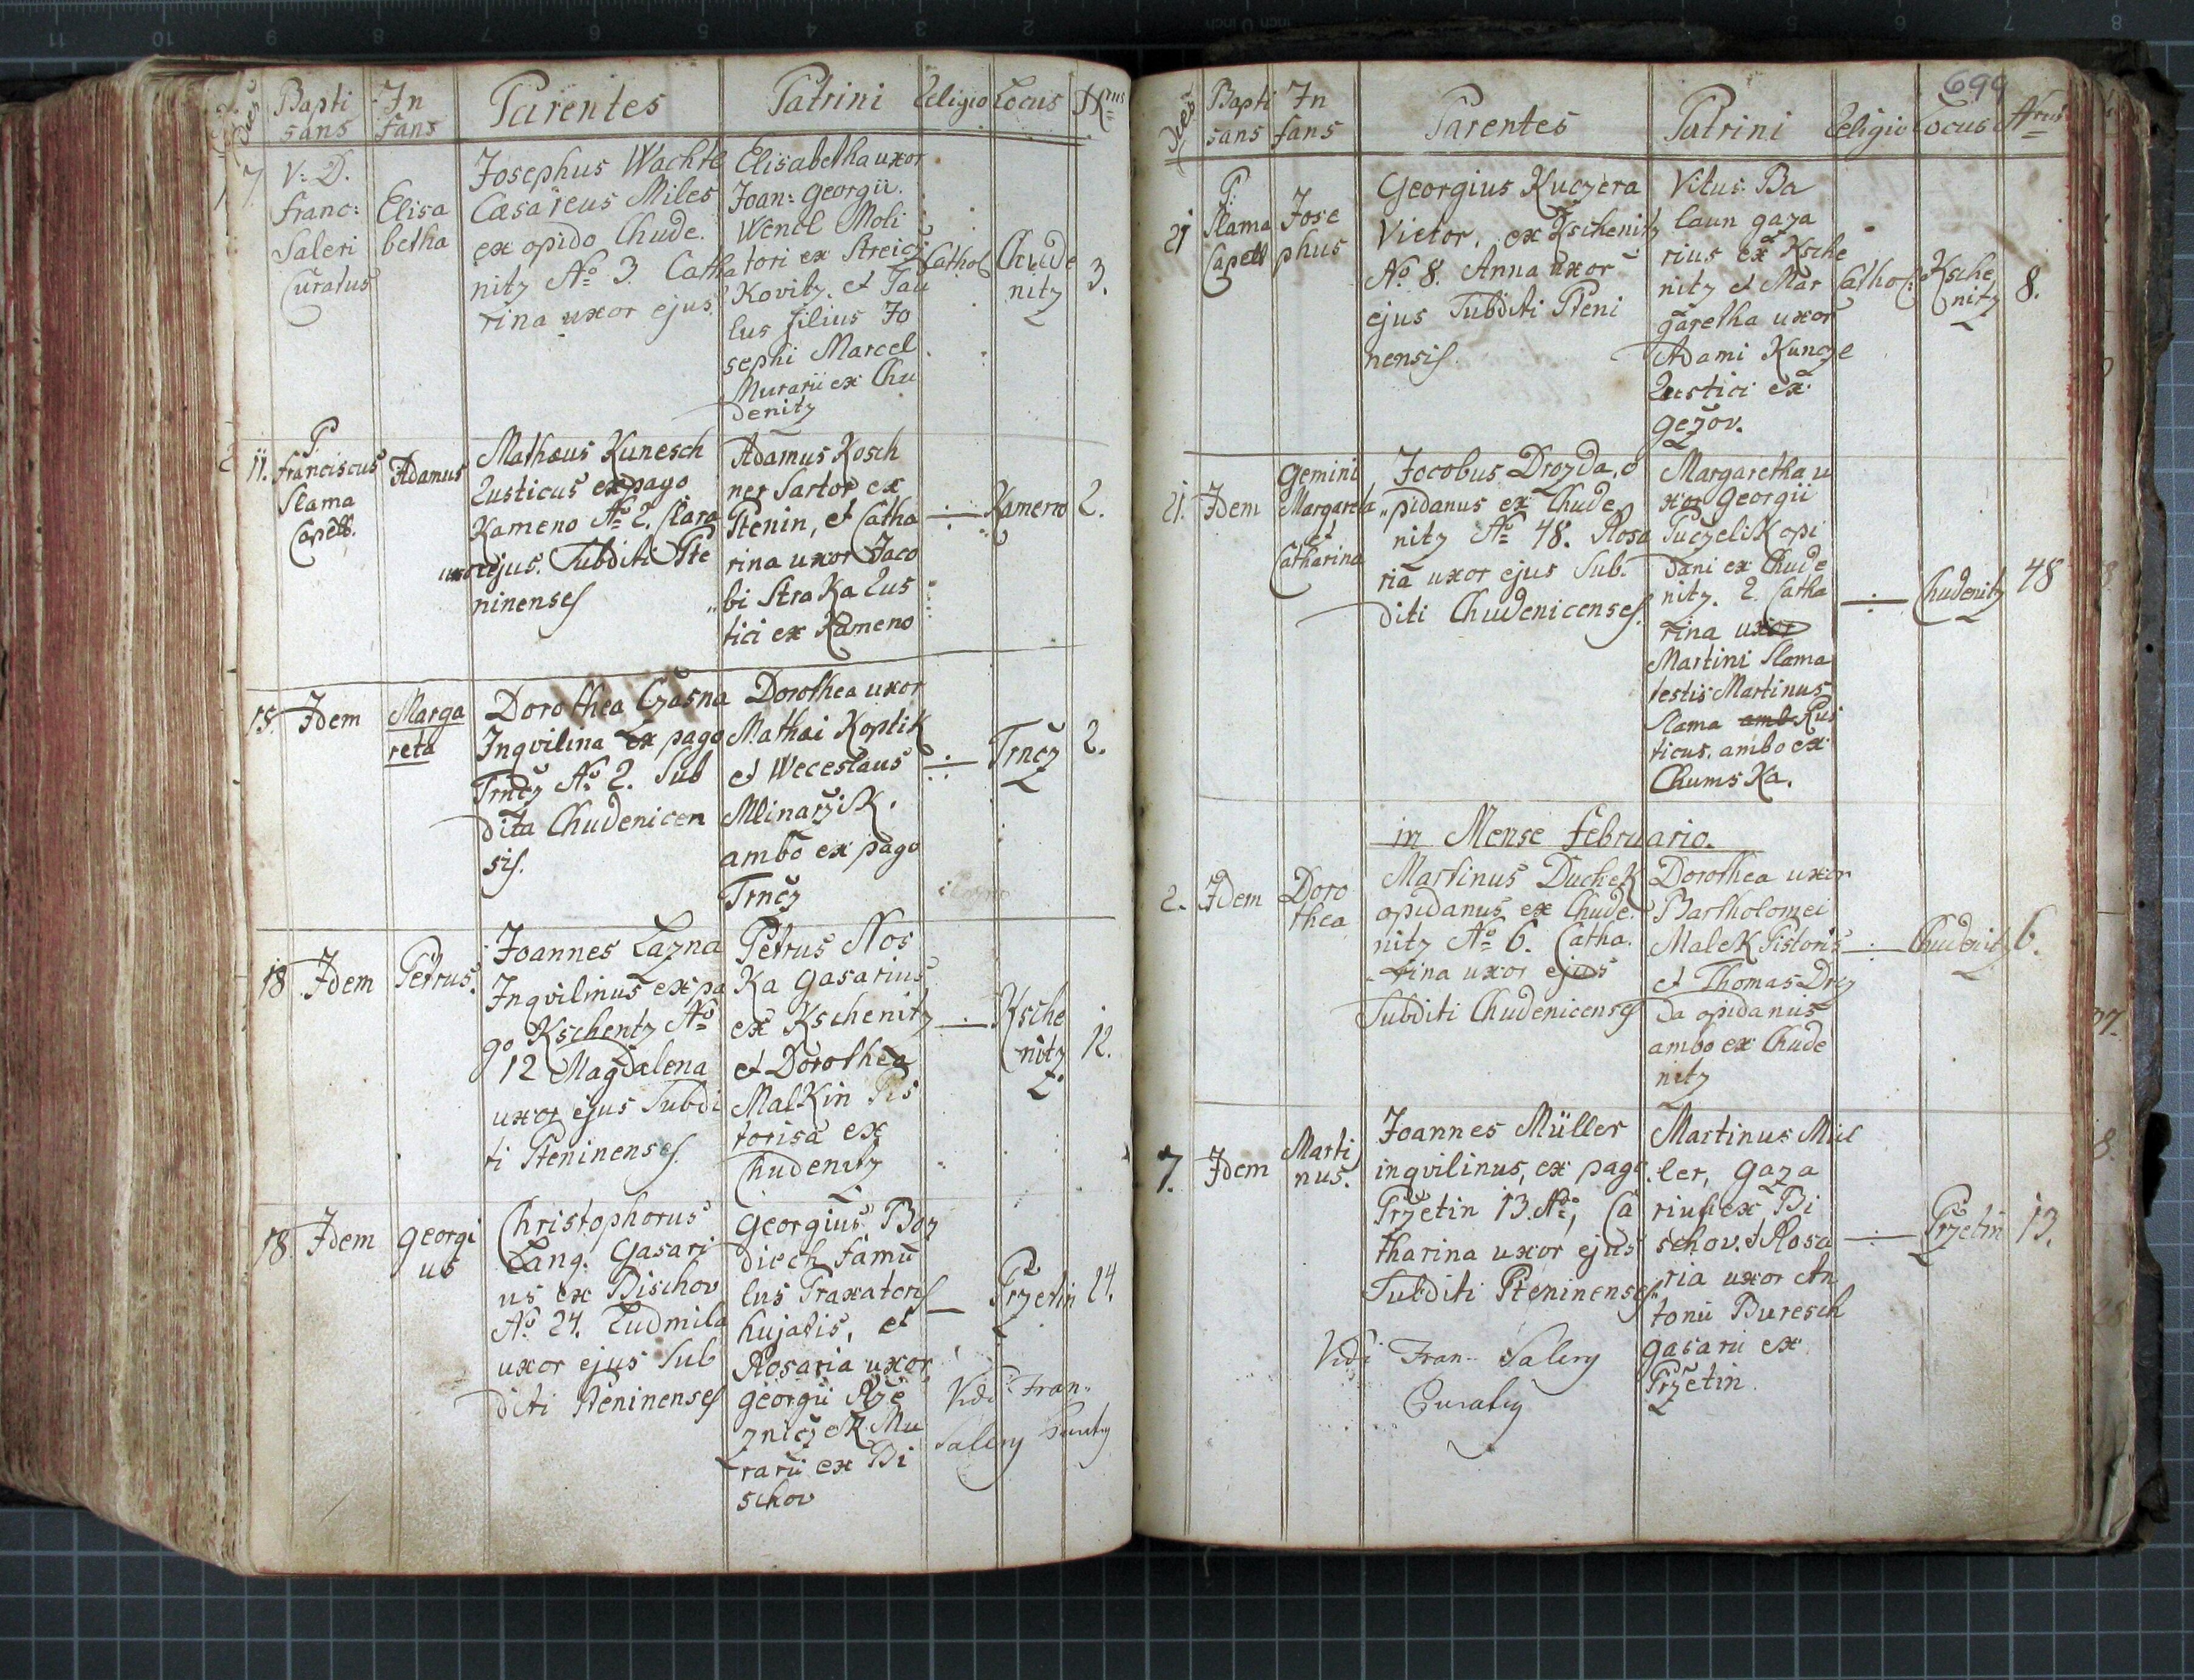 Dies
Bapti
sans
In
fans
Parentes
Patrini
Religio
Locus
Nrus
7.
V: D.
Franc:
Saleri
Curatus
Elisa
betha
Josephus Wachte
Cæsareus Miles
ex opido Chude.
nitz No 3. Catha
rina uxor ejus.
Elisabetha uxor
Joan: Georgii
Wenel Moli
tori ex Streici
Kovitz. et Pau
lus filius Jo
sephi Marcel
Murarii ex Chu
denitz
Cathol
Chude
nitz
3.
11.
P.
Franciscus
Slama
Capell.
Adamus
Mathæus Kunesch
Rusticus ex pago
Kameno No 2. Clara
uxor ejus. Subditi Ste
ninenses
Adamus Kosch
ner Sartor ex
Ptenin, et Catha
rina uxor Jaco
bi Straka Rus
tici ex Kameno
Kameno
2.
15.
Idem
Marga
reta
Dorothea Czasna
Inqvilina ex pago
Trncz No 2. Sub
dita Chudenicen
sis.
Dorothea uxor
Mathæi Koptik
et Weceslaus
Mlinarzik.
ambo ex pago
Trncz
Trncz
2.
18
Idem
Petrus.
Joannes Lazna
Inqvilinus ex pa
go Kschentz No
12 Magdalena
uxor ejus Subdi
ti Pteninenses
Petrus Nos
Ka Gasarius
ex Kschenitz
et Dorothea
Malkin Pis
torisa ex
Chudenitz
Ksche
nitz
12.
18.
Idem
Georgi
us
Christophorus
Lang. Gasari
us ex Bischov
No 24. Ludmila
uxor ejus Sub
diti Pteninenses
Georgius Boz
diech famu
lus Praxatoris
hujatis, et
Rosaria uxor
Georgii Rze
zniczek Mu
rarii ex Bi
schov
Przetin
24.
Vidi Fran.
Salery
699
Dies
Bapti
sans
In
fans
Parentes
Patrini
Religio
Locus
Nrus
21
P.
Slama
Capell
Jose
phus
Georgius Kuczera
Vietor. ex Kschenitz
No 8. Anna uxor
ejus Subditi Pteni
nensis
Vitus Ba
laun gaza
rius ex Ksche
nitz et Mar
garetha uxor
Adami Kuncze
Rustici ex
Gezov.
Cathol:
Ksche
nitz
8.
21.
Idem
Gemini
Margareta
et
Catharina
Jocobus Drozda, o
pidanus ex Chude
nitz No 48. Rosa
ria uxor ejus Sub.
diti Chudenicenses.
Margaretha u
xor Georgii
Puczelik opi
dani ex Chude
nitz. 2. Catha
rina uxor
Martini Slama
testis Martinus
Slama amb Rus
ticus. ambo ex
Chumska.
Chudenitz
48
in Mense Februario.
2.
Idem
Doro
thea
Martinus Duchek
opidanus ex Chude.
nitz No 6. Catha.
rina uxor ejus
Subditi Chudenicenses
Dorothea uxor
Bartholomei
Malek Pistoris
et Thomas Droz
da opidanus
ambo ex Chude
nitz
Chudenitz
6.
7.
Idem
Marti
nus.
Joannes Müller
inqvilinus, ex pago
Przetin 13. No, Ca
tharina uxor ejus
Subditi Pteninenses
Martinus Mül
ler, gaza
rius ex Bi
schov. et Rosa
ria uxor An
tonii Buresch
gasarii ex
Przetin.
Przetin
13.
Vidi Fran. Salery